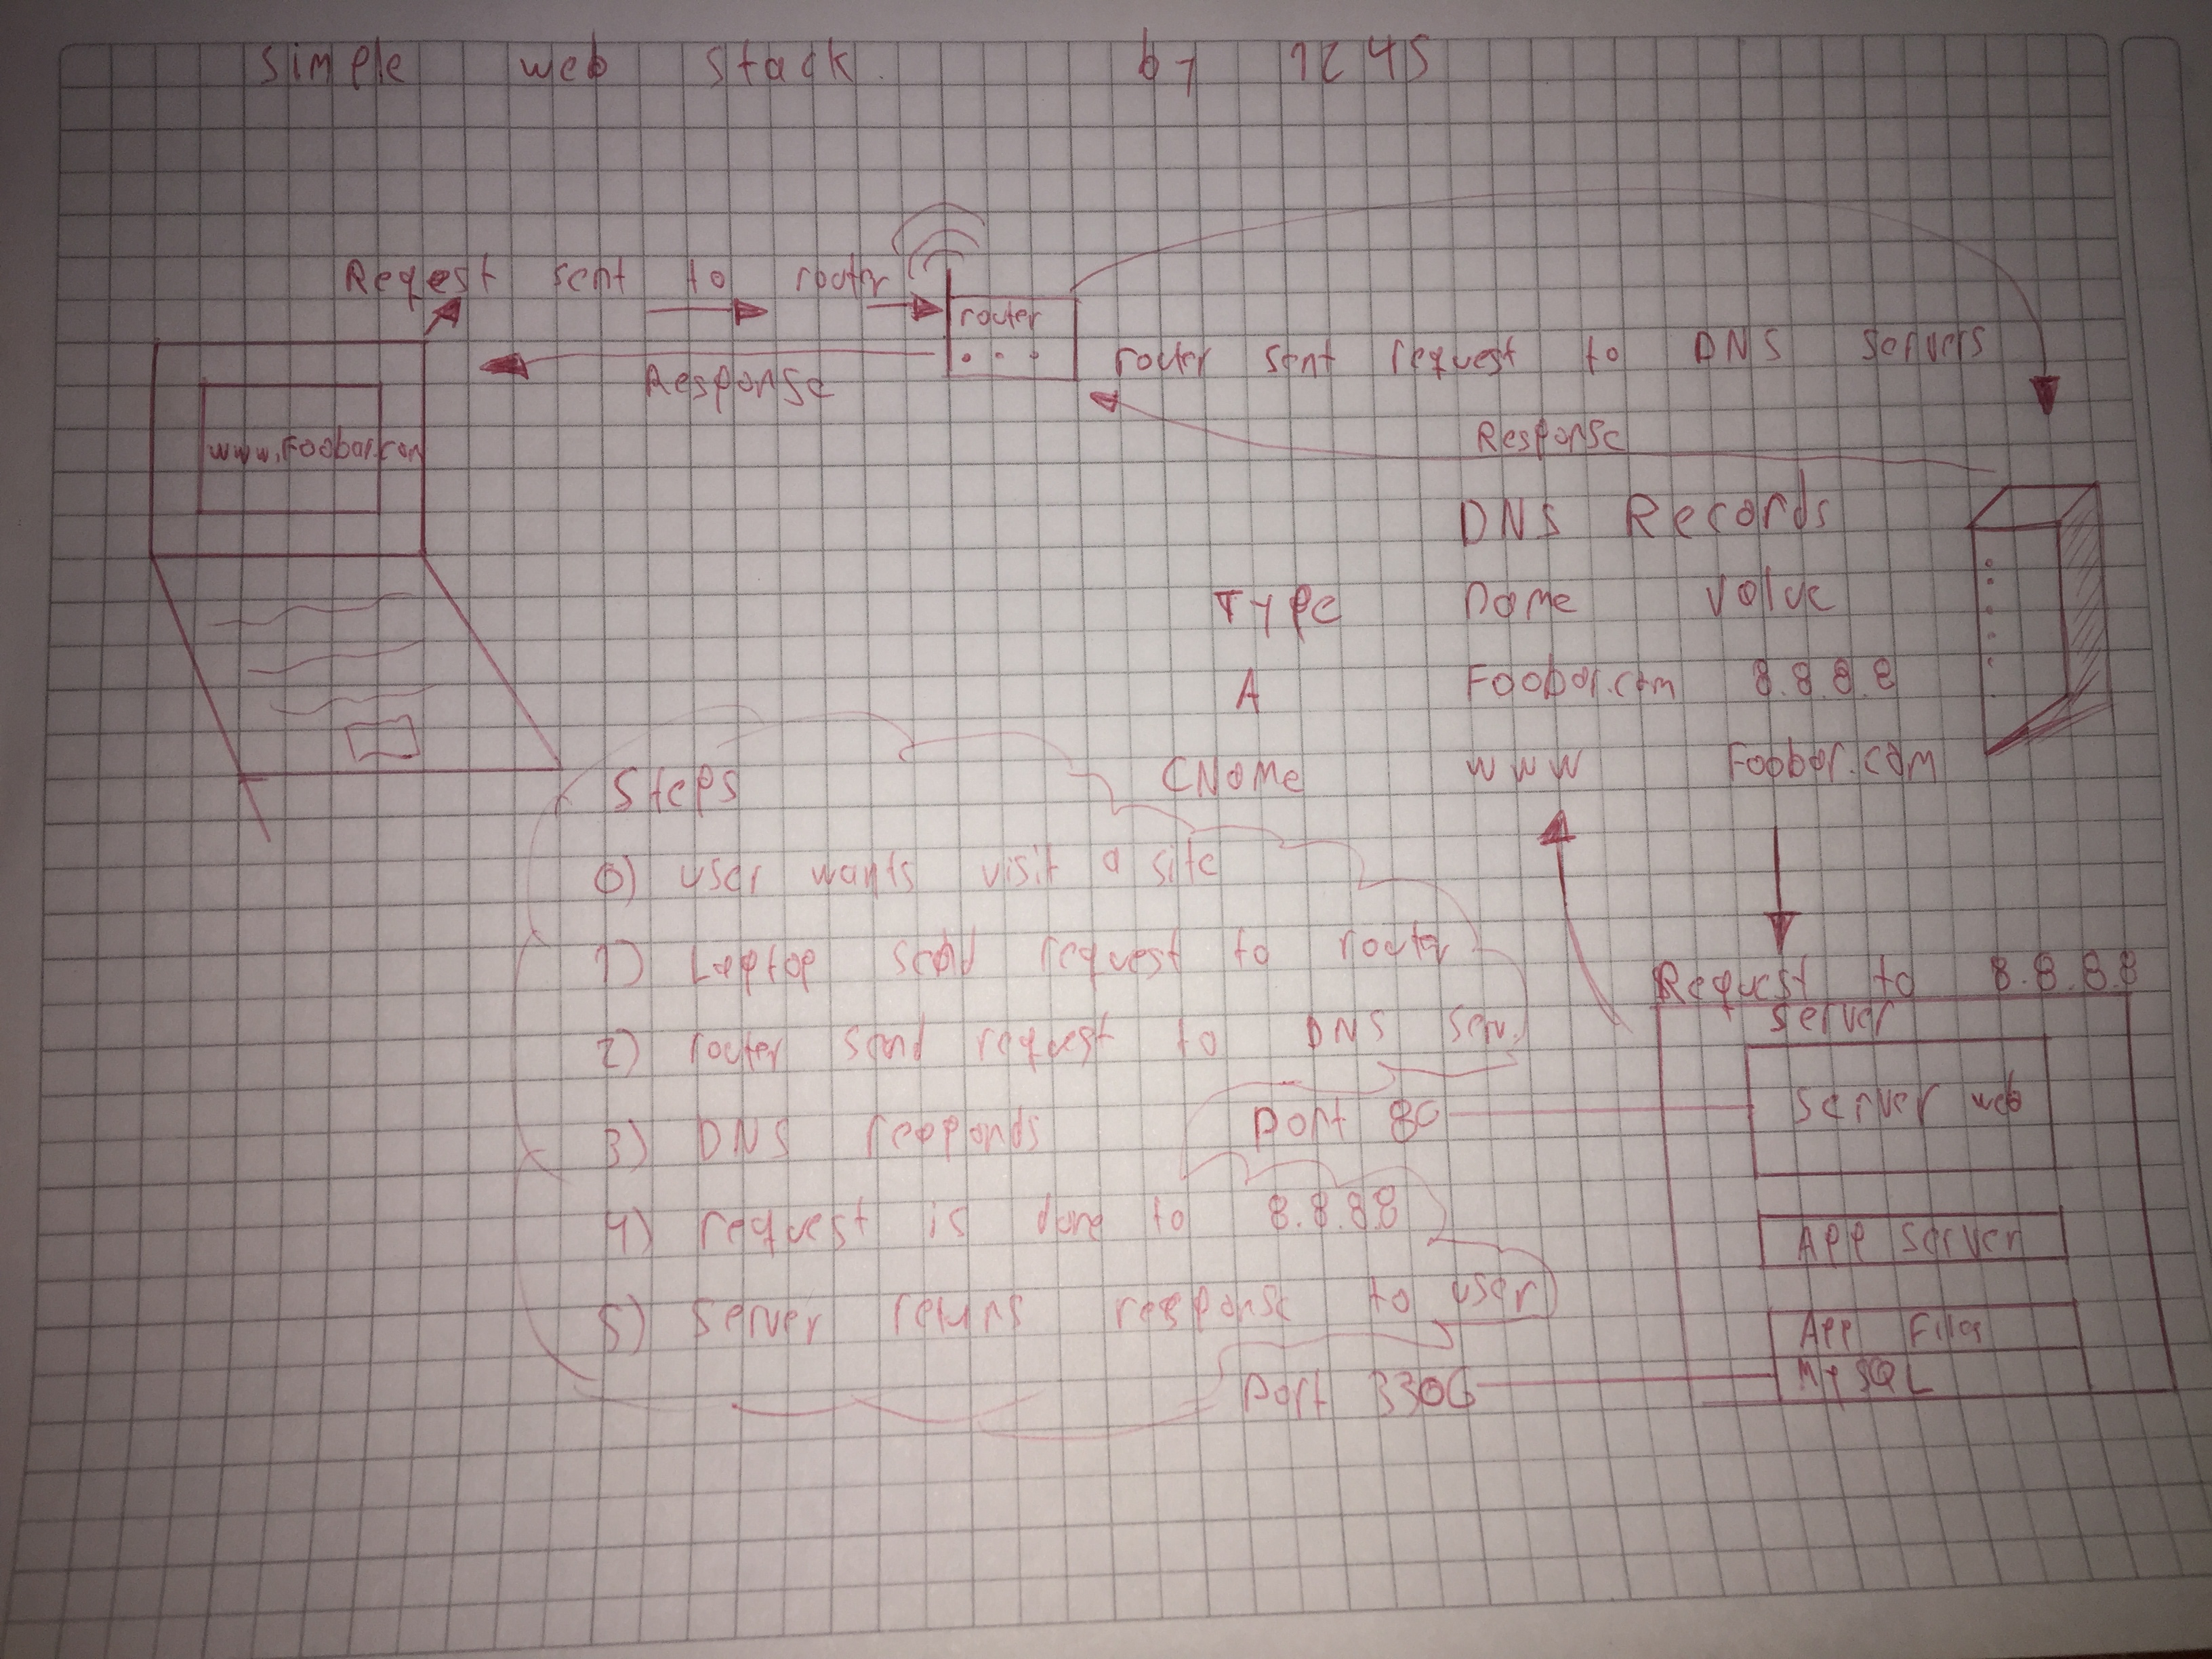 simple web stack. by 1245
Reqest sent to router
router
router sent request to DNS servers
Response
Response
www.Foobar.com
DNS Records
Type Name Value
A Foobar.com 8.8.8.8
CName www Foobar.com
Steps
0) user wants visit a site
1) Laptop send request to router
2) router send request to DNS serv.
3) DNS responds
4) request is done to 8.8.8.8
5) server returns response to user
Request to 8.8.8.8
server
Port 80
server web
App server
App Files
Port 3306
MySQL